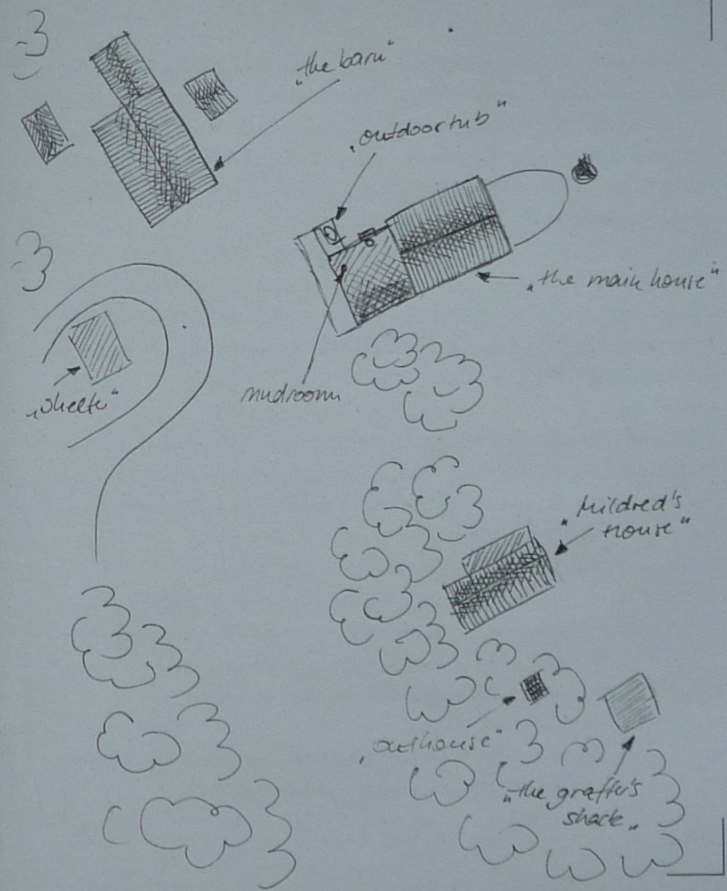 "the barn"
"outdoor tub"
"the main house"
mudroom
"shelter"
"Mildred's
House"
"outhouse"
"the grafter's
shack"